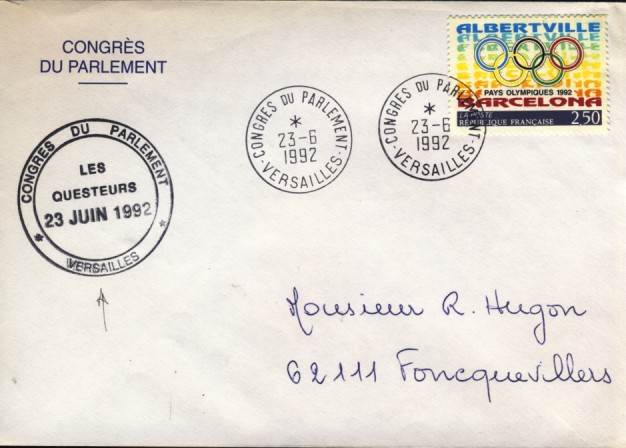 CONGRÈS
DU PARLEMENT
ALBERTVILLE
PAYS OLYMPIQUES 1992
BARCELONA
LA POSTE
RÉPUBLIQUE FRANÇAISE 2,50
CONGRES DU PARLEMENT
*
23-6
1992
- VERSAILLES -
CONGRES DU PARLEMENT
*
23-6
1992
- VERSAILLES -
CONGRES DU PARLEMENT
LES
QUESTEURS
23 JUIN 1992
* VERSAILLES *
Monsieur R. Hugon
62111 Foncquevillers